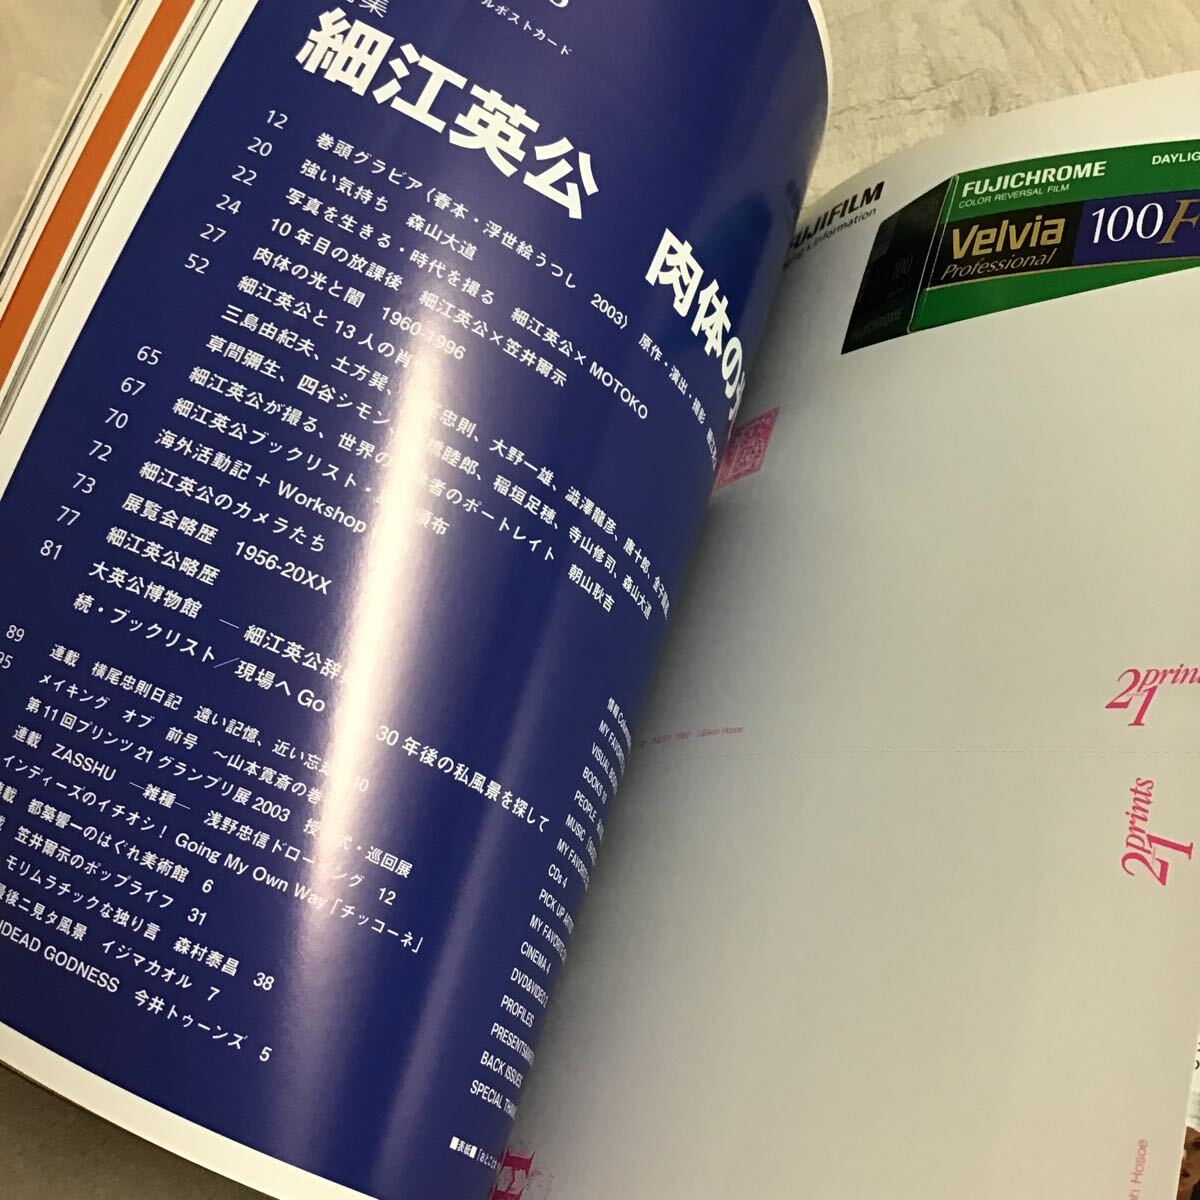 ルポストカード
集
細江英公
肉体の
12 巻頭グラビア〈春本・浮世絵うつし 2003〉 原作・演出・撮影
20 強い気持ち 森山大道
22 写真を生きる・時代を撮る 細江英公×MOTOKO
24 10年目の放課後 細江英公×笠井爾示
27 肉体の光と闇 1960-1996
52 細江英公と13人の肖
三島由紀夫、土方巽、 忠則、大野一雄、澁澤龍彦、唐十郎、金子
草間彌生、四谷シモン、 橋睦郎、稲垣足穂、寺山修司、森山大道
65 細江英公が撮る、世界の 者のポートレイト 朝山耿吉
67 細江英公ブックリスト・ 頒布
70 海外活動記 + Workshop
72 細江英公のカメラたち
73 展覧会略歴 1956-20XX
77 細江英公略歴
81 大英公博物館 ―細江英公辞
続・ブックリスト/現場へGo 30年後の私風景を探して
89 連載 横尾忠則日記 遠い記憶、近い忘 10
95 メイキング オブ 前号 ～山本寛斎の巻
第11回プリンツ21グランプリ展2003 授 式・巡回展
連載 ZASSHU ―雑種― 浅野忠信ドローイング 12
インディーズのイチオシ! Going My Own Way「チッコーネ」
連載 都築響一のはぐれ美術館 6
笠井爾示のポップライフ 31
モリムラチックな独り言 森村泰昌 38
最後ニ見タ風景 イジマカオル 7
DEAD GODNESS 今井トゥーンズ 5
情報
MY FAVORI
VISUAL BOO
BOOKS 10
PEOPLE
MUSIC
MY FAVORITE
CDs 4
PICK UP ARTI
MY FAVORITE
CINEMA 4
DVD&VIDEO 2
PROFILES
PRESENTS
BACK ISSUES
SPECIAL THAN
■表紙■「おとこと
FUJIFILM
Information
FUJICHROME
COLOR REVERSAL FILM
DAYLIG
Velvia
Professional
100F
100
FUJICHROME
prints
21
1960
Hosoe
prints
21
Hosoe